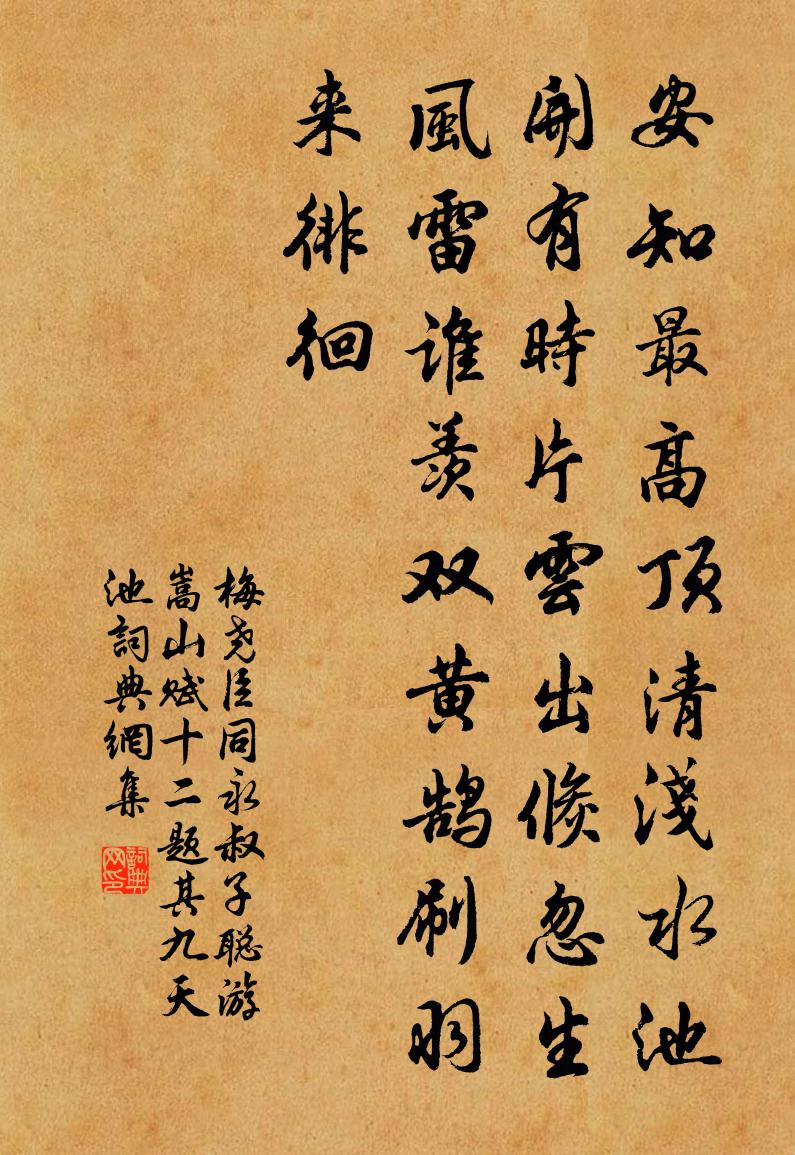 安知最高顶清淺水池
開有時片雲出倐忽生
風雷誰羡双黄鹄刷羽
来徘徊
梅尧臣同永叔子聪游
嵩山赋十二题其九天
池詞典網集
詞典
网印